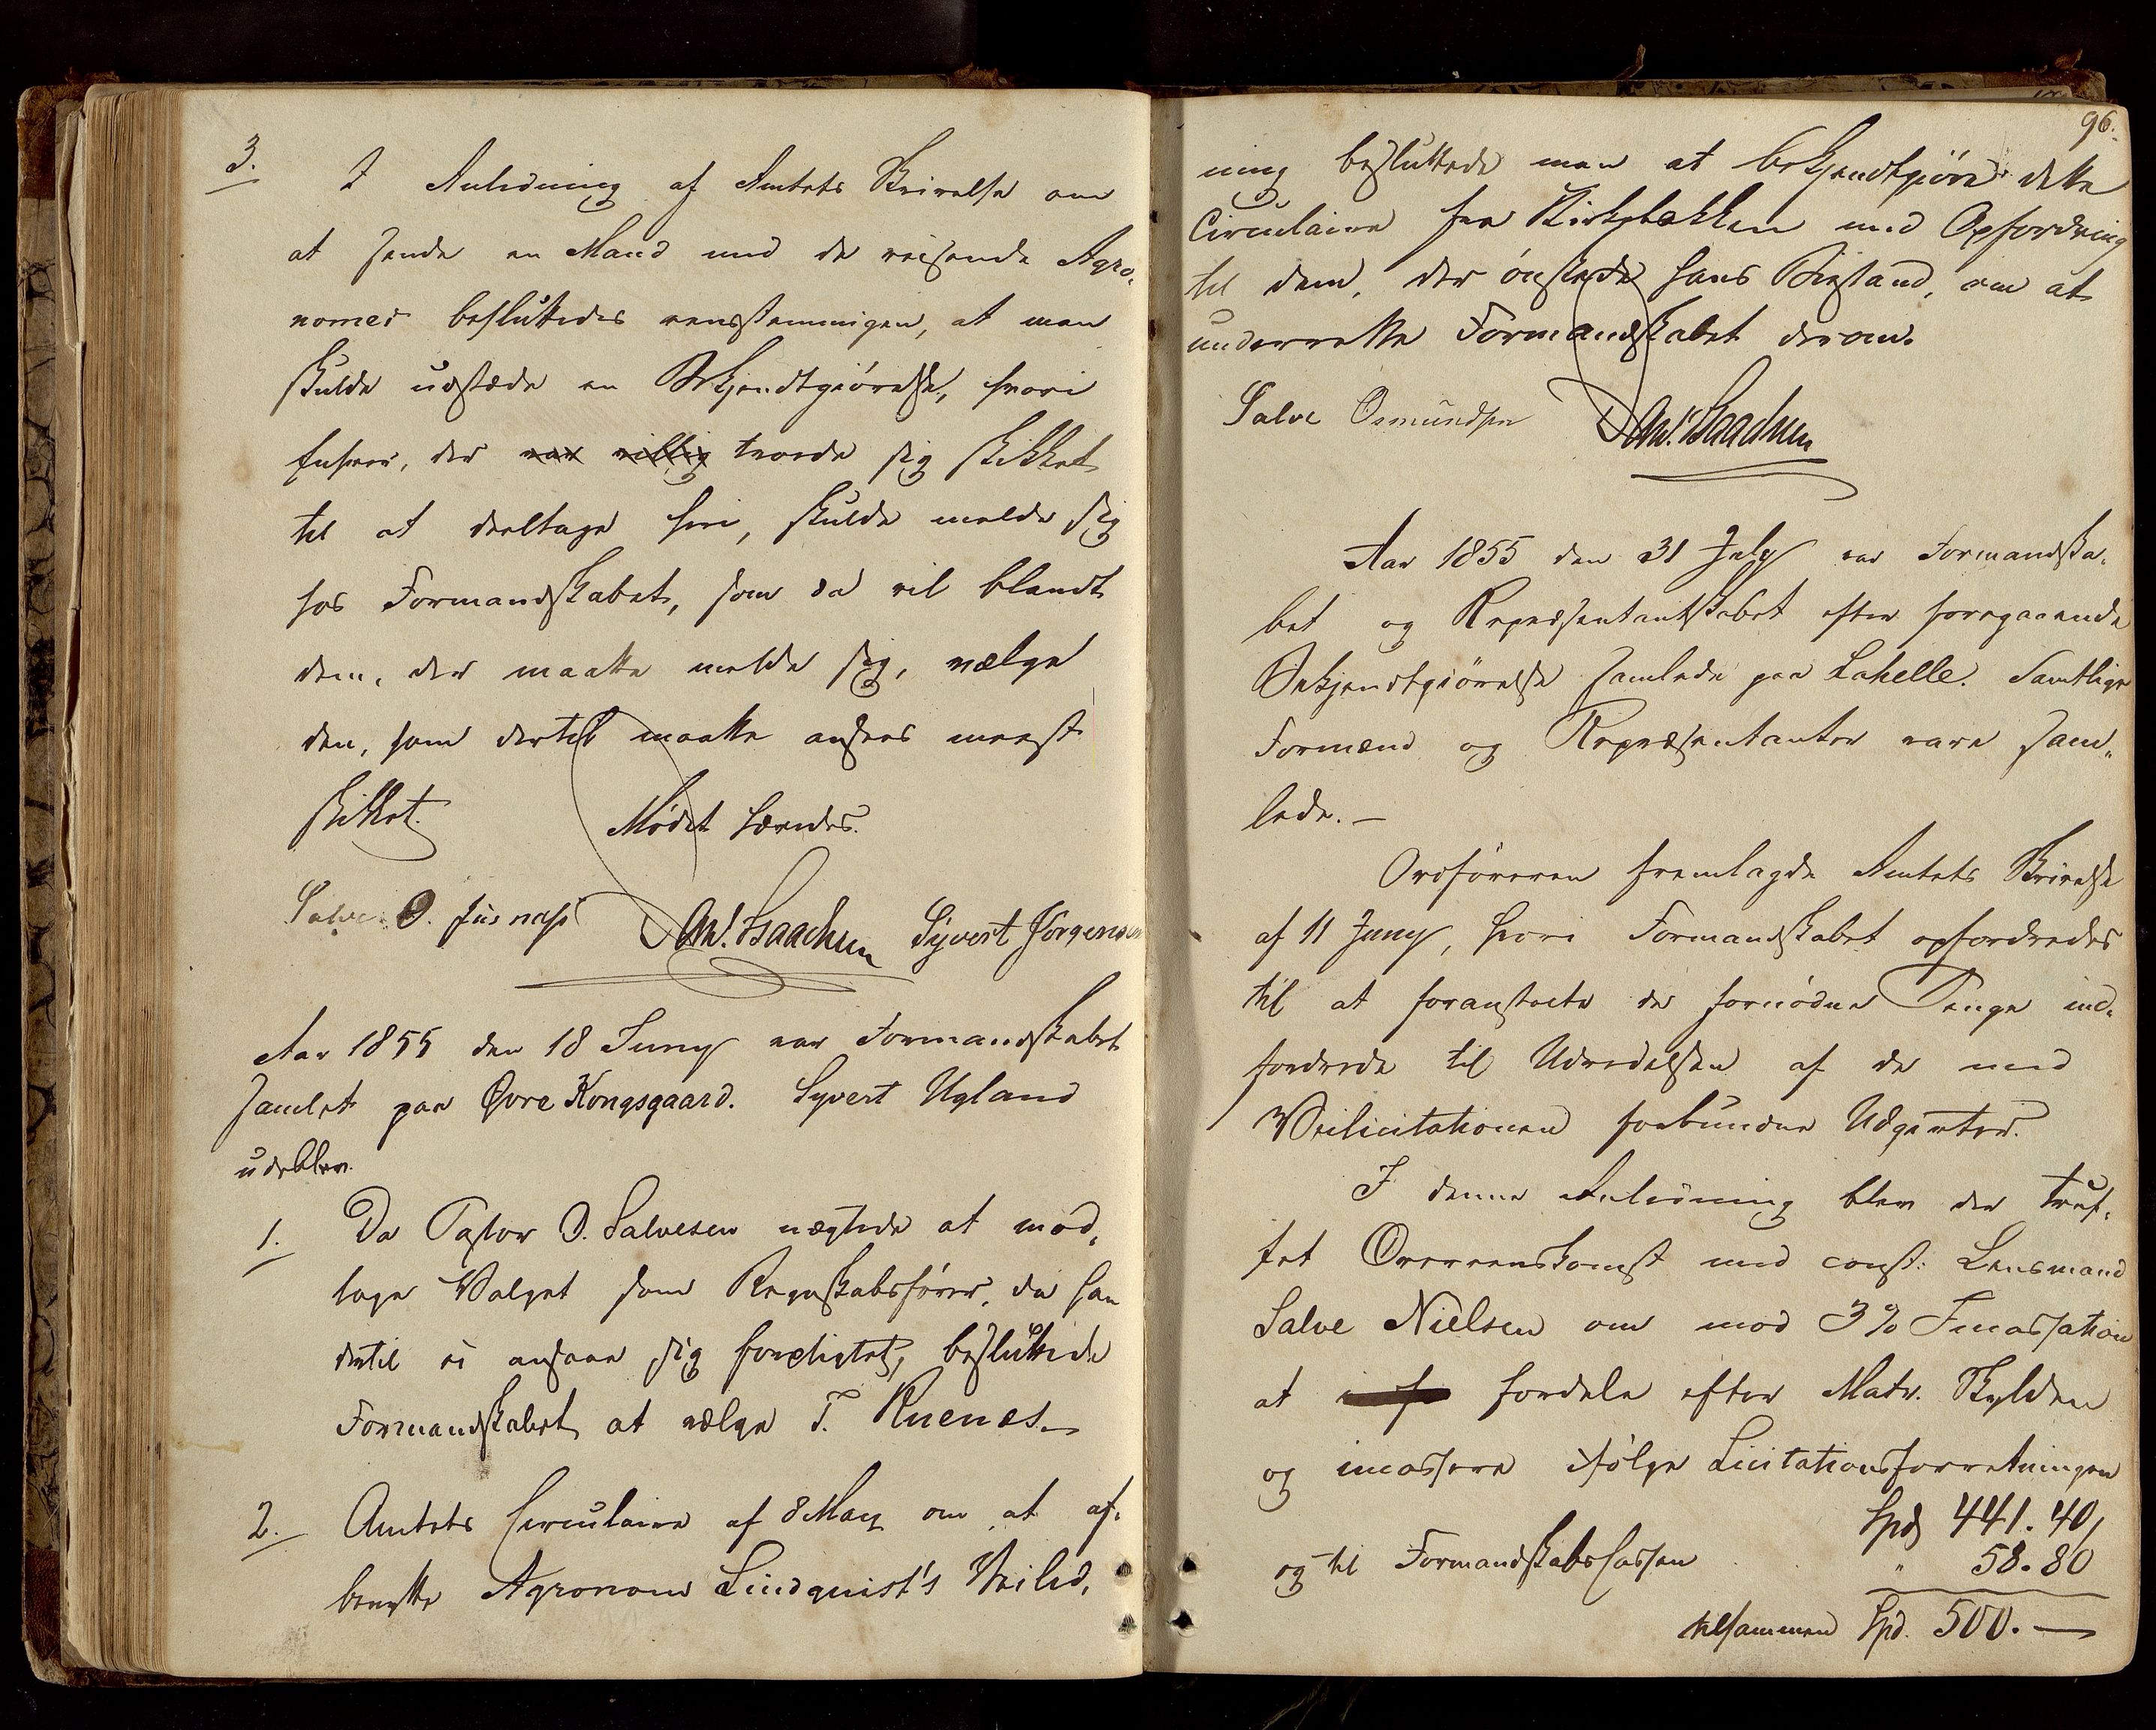 3. I Anledning af Amtets Skrivelse om
at sende en Mand med de reisende Agro-
nomer besluttedes eensstemmigen, at man
skulde udstæde en Bekjendtgjørelse, hvori
Enhver, der var villig troede sig skikket
til at deeltage heri, skulde melde sig
hos Formandskabet, som da vil blandt
dem, der maatte melde sig, vælge
den, som dertil maatte ansees meest
skikket. Mødet hævedes.
Salve O. Dan. Isaachsen Syvert Jörgensen
Aar 1855 den 18 Juny var Formandskabet
samlet paa Øvre Kongsgaard. Syvert Ugland
udeblev.
1. Da Pastor O. Salvesen nægtede at mod-
tage Valget som Regnskabsfører, da han
dertil ei ansaae sig forpligtet, besluttede
Formandskabet at vælge T. Ruenes.
2. Amtets Circulaire af 8 May om at af-
benytte Agronom Lindquist's Veiled-
96.
ning besluttede man at bekjendtgjøre dette
Circulaire fra Kirkebakken med Opfordring
til dem, der ønskede hans Bistand, om at
underrette Formandskabet derom.
Salve Osmundsen Dan. Isaachsen
Aar 1855 den 31 July var Formandska-
bet og Repræsentantskabet efter foregaaende
Bekjendtgjørelse samlede paa Lahelle. Samtlige
Formænd og Repræsentanter vare sam-
lede. —
Ordføreren fremlagde Amtets Skrivelse
af 11 Juny, hvori Formandskabet opfordredes
til at foranstalte de fornødne Penge ind-
fordrede til Udredelsen af de med
Veilicitationen forbundne Udgifter.
I denne Anledning blev der truf-
fet Overeenskomst med const: Lensmand
Salve Nielsen om mod 3% Incassation
at fordele efter Matr. Skylden
og incassere ifølge Licitationsforretningen
Spd 441. 40,
og til Formandskabscassen " 58. 80
tilsammen Spd. 500. —